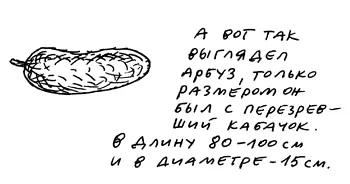 А ВОТ ТАК
ВЫГЛЯДЕЛ
АРБУЗ, ТОЛЬКО
РАЗМЕРОМ ОН
БЫЛ С ПЕРЕЗРЕВ-
ШИЙ КАБАЧОК.
В ДЛИНУ 80-100 см
И В ДИАМЕТРЕ-15см.